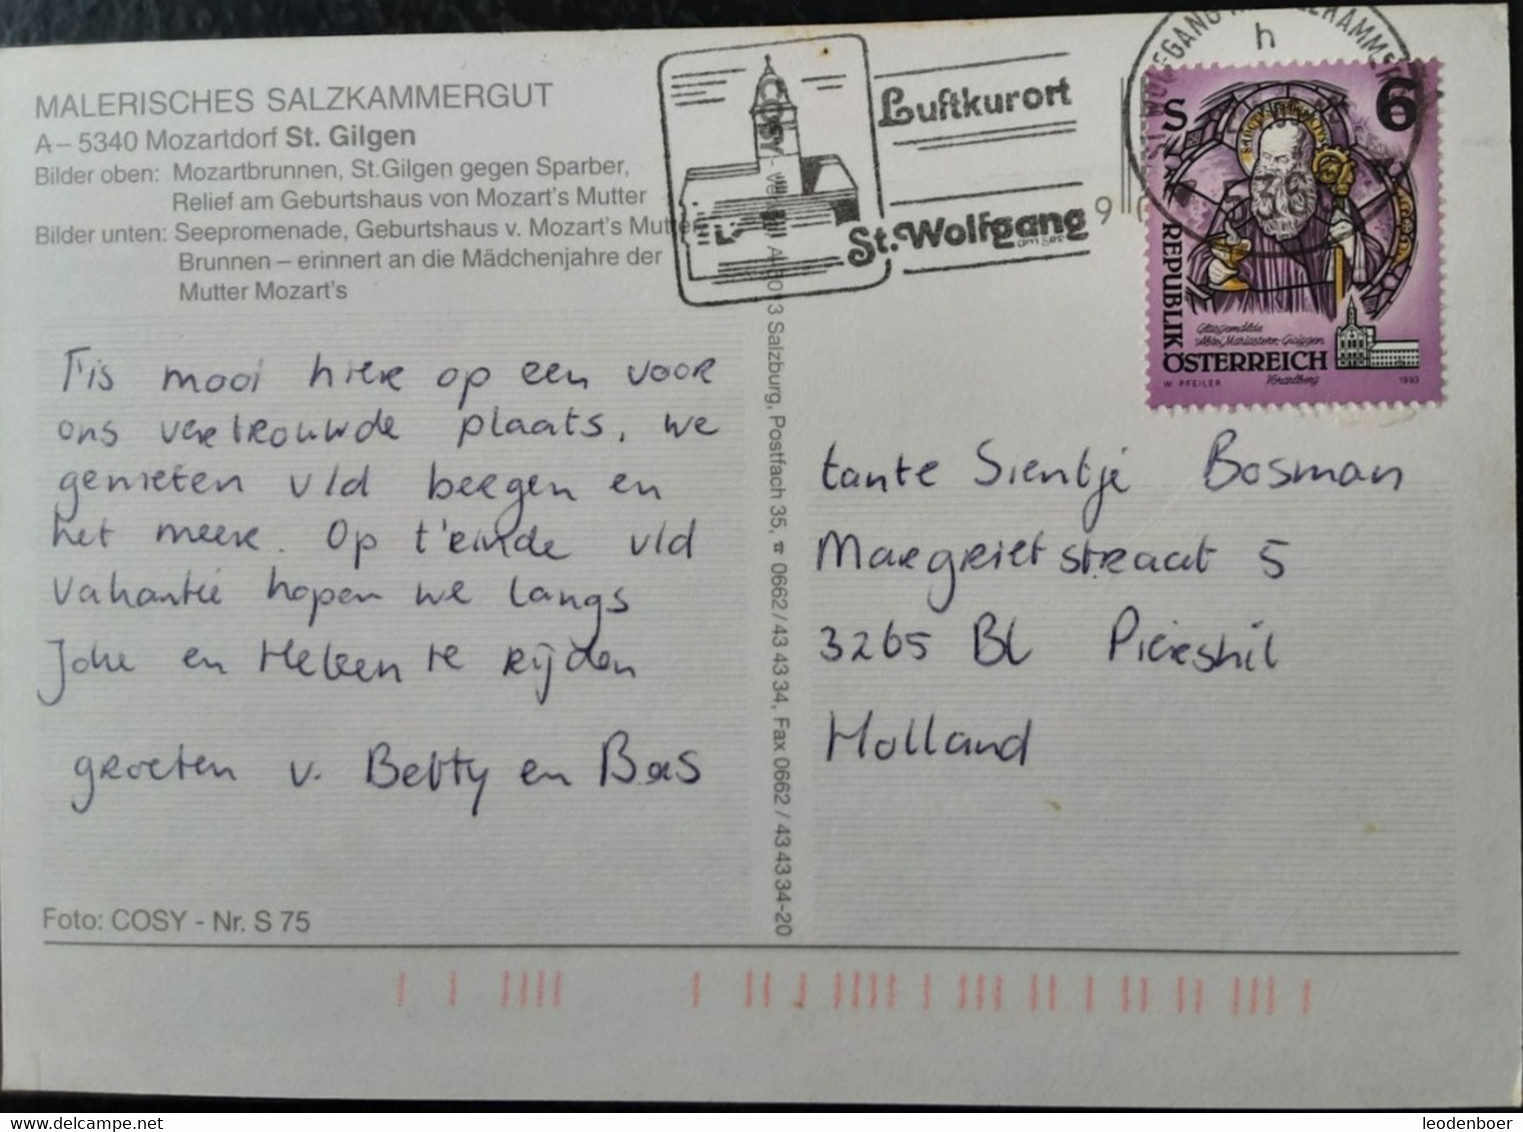 MALERISCHES SALZKAMMERGUT
A – 5340 Mozartdorf St. Gilgen
Bilder oben: Mozartbrunnen, St.Gilgen gegen Sparber,
Relief am Geburtshaus von Mozart's Mutter
Bilder unten: Seepromenade, Geburtshaus v. Mozart's Mutter
Brunnen – erinnert an die Mädchenjahre der
Mutter Mozart's
T'is mooi hier op een voor
ons vertrouwde plaats, we
genieten v/d bergen en
het meer. Op t'einde v/d
vakantie hopen we langs
Joke en Heleen te rijden
groeten v. Betty en Bas
Foto: COSY - Nr. S 75
COSY - Verlag A-5013 Salzburg, Postfach 35, ☎ 0662/43 43 34, Fax 0662/43 43 34-20
Luftkurort
St. Wolfgang
am See
h
S 6
REPUBLIK
ÖSTERREICH
Glasgemälde
Abtei Mariastern-Gwiggen
Vorarlberg
W. PFEILER
1993
tante Sientje Bosman
Margrietstraat 5
3265 BL Piershil
Holland
leodenboer